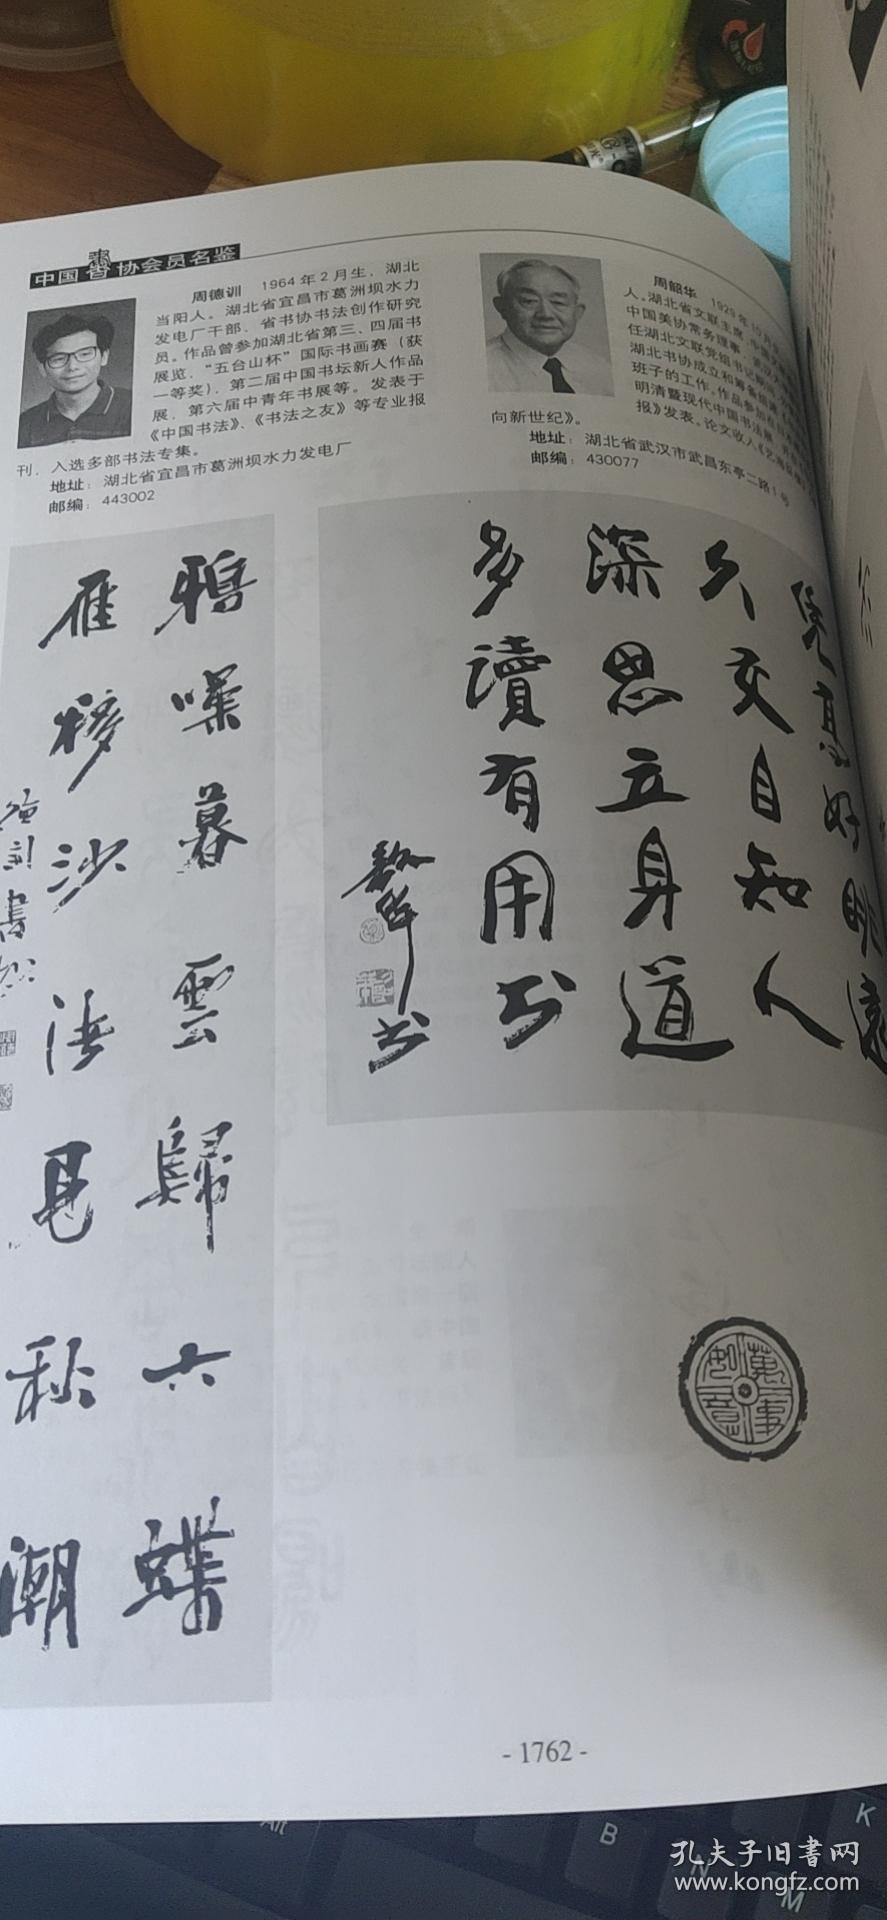 中国书协会员名鉴
周德训 1964年2月生,湖北
当阳人。湖北省宜昌市葛洲坝水力
发电厂干部,省书协书法创作研究
员。作品曾参加湖北省第三、四届书
展览,“五台山杯”国际书画赛(获
一等奖),第二届中国书坛新人作品
展,第六届中青年书展等。发表于
《中国书法》、《书法之友》等专业报
刊,入选多部书法专集。
地址:湖北省宜昌市葛洲坝水力发电厂
邮编:443002
周韶华 1929年10月
人。湖北省文联主席,中国
中国美协常务理事,
任湖北文联党组书记期间,
湖北书协成立和筹备组建
班子的工作。作品参加
明清暨现代中国书法展,
报》发表。论文收入《艺海
向新世纪》。
地址:湖北省武汉市武昌东亭二路1号
邮编:430077
鴉噪暮雲歸六蝶
雁移沙渚見秋潮
德訓書
好眺遠
久交自知人
深思立身道
多讀有用书
韶华书
- 1762 -
Alt
B
N
M
K
孔夫子旧書网
www.kongfz.com